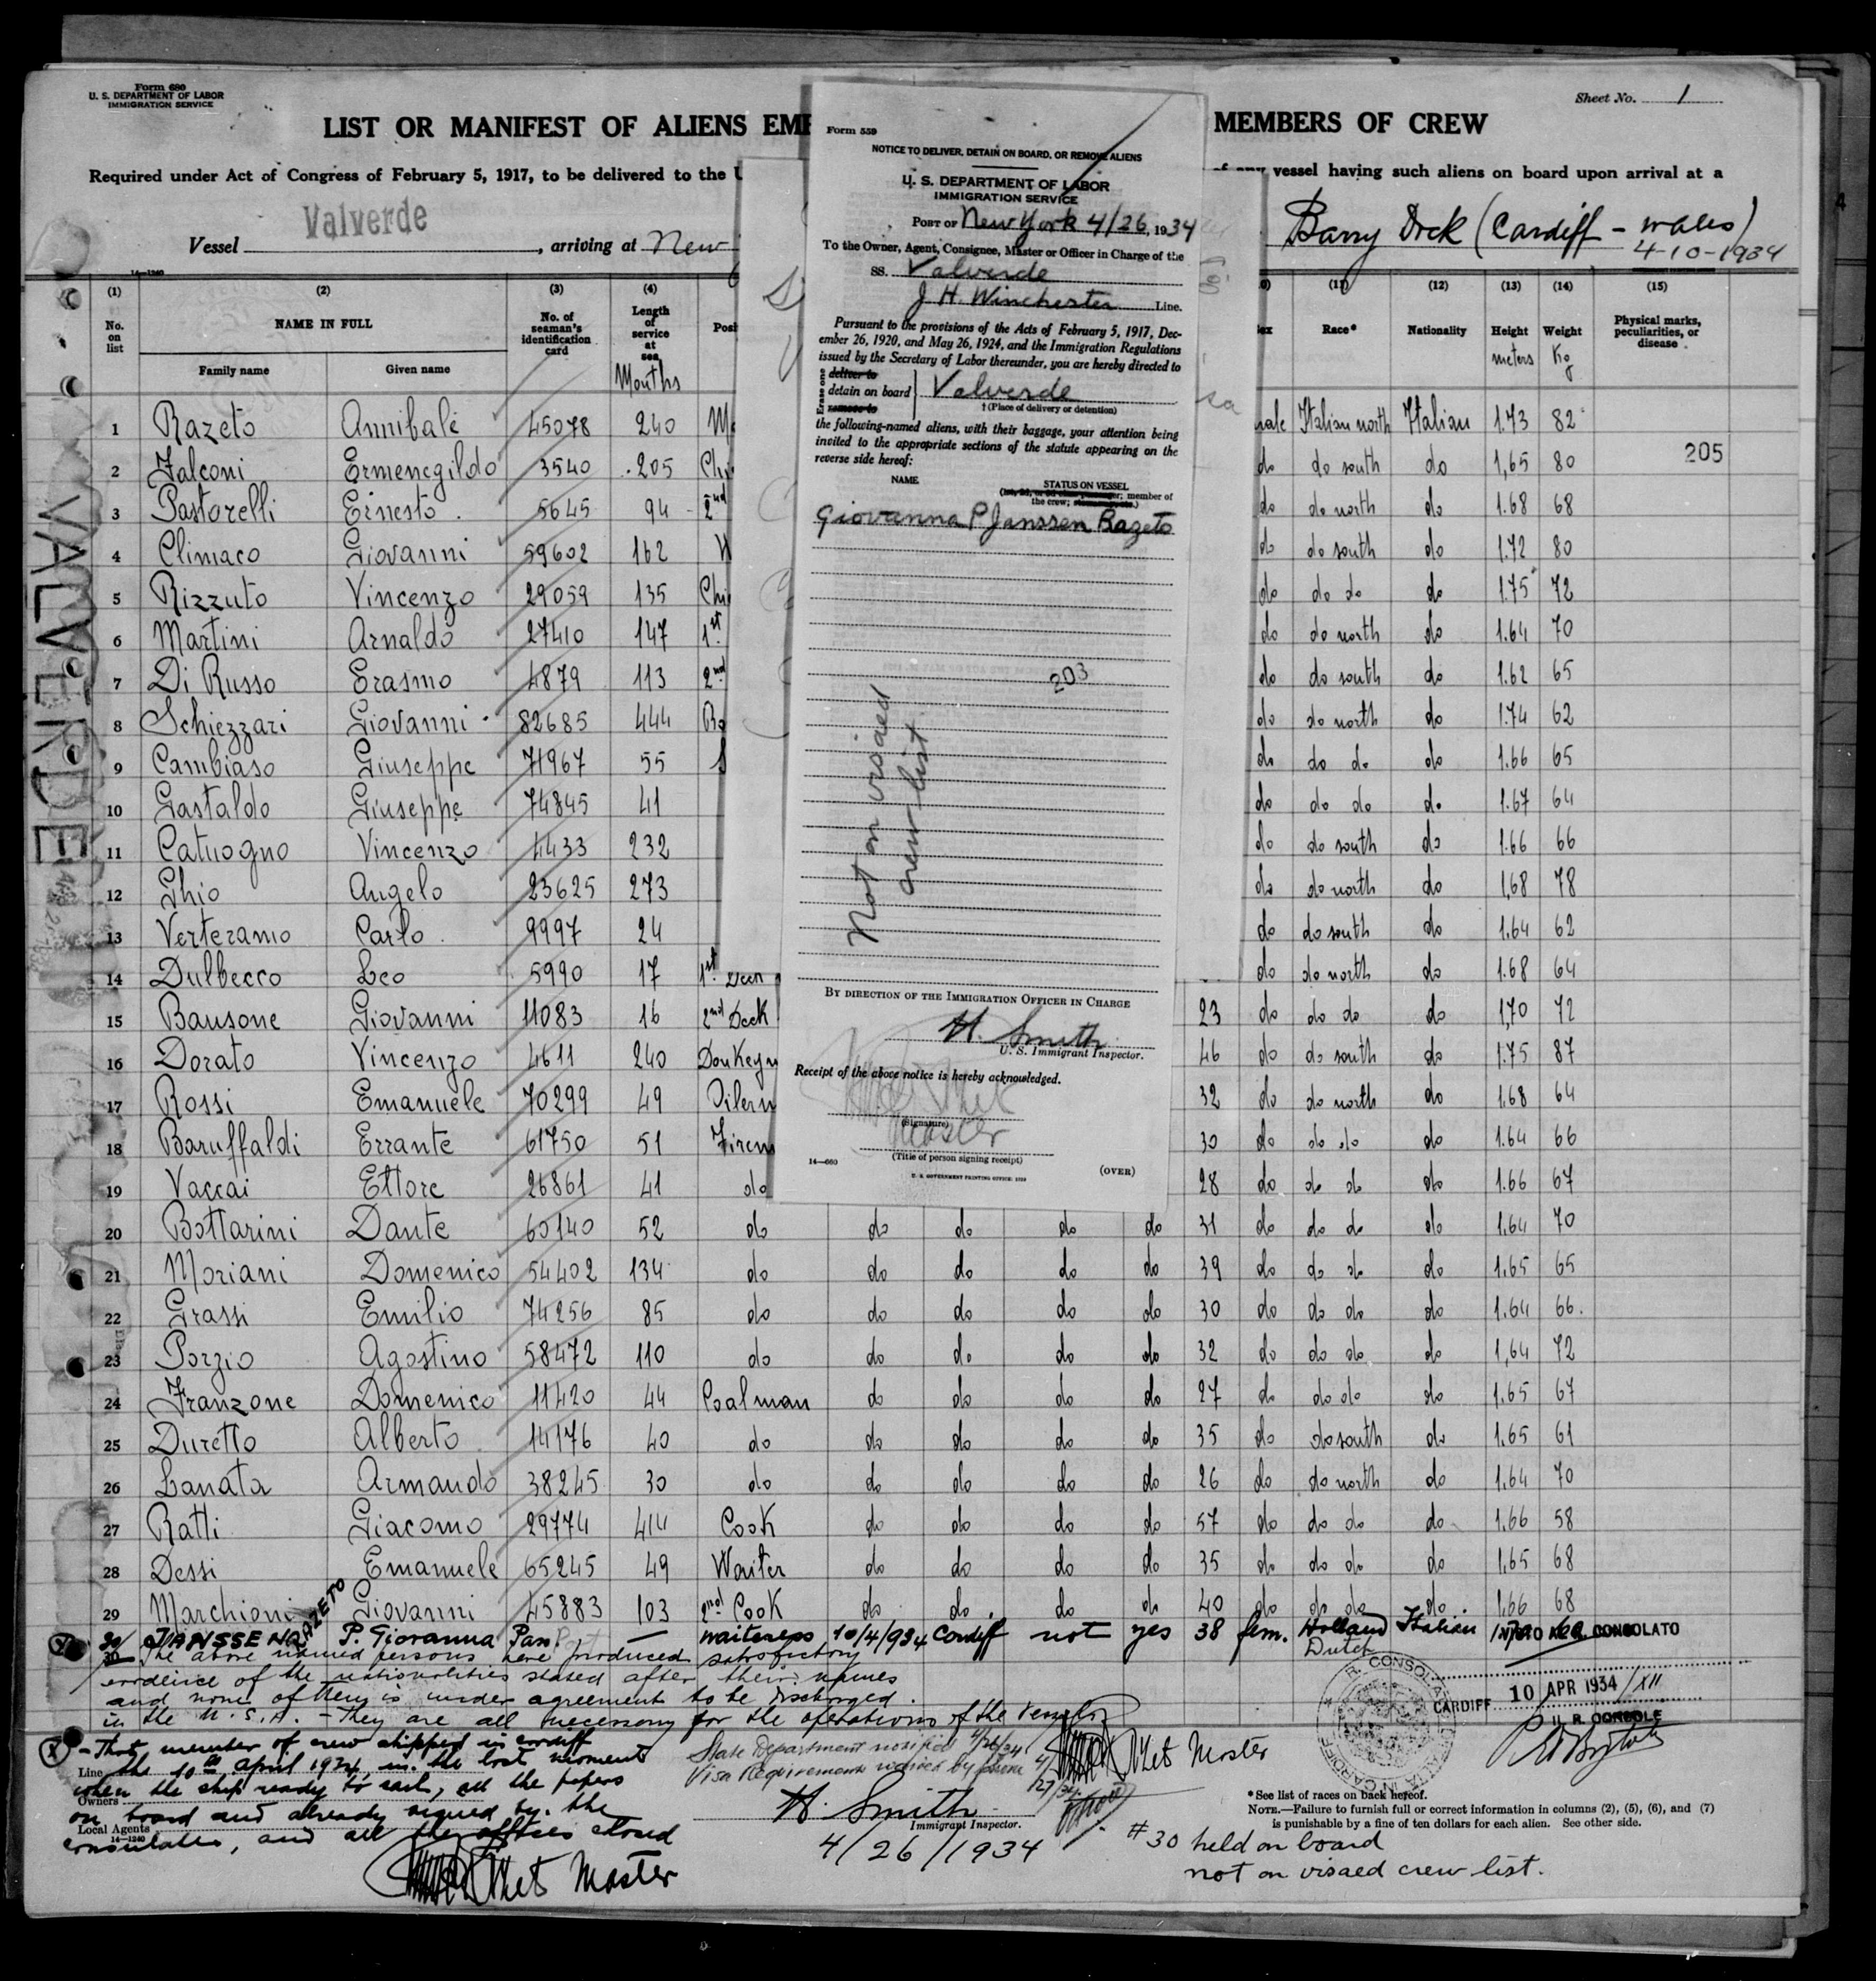 Form 680
U. S. DEPARTMENT OF LABOR
IMMIGRATION SERVICE
Sheet No. 1
LIST OR MANIFEST OF ALIENS EMP
MEMBERS OF CREW
Required under Act of Congress of February 5, 1917, to be delivered to the U
of any vessel having such aliens on board upon arrival at a
Vessel Valverde, arriving at New
Barry Dock (Cardiff - Wales)
4-10-1934
14-1240
(1) (2) (3) (4) (11) (12) (13) (14) (15)
No. on list
NAME IN FULL
Family name Given name
No. of seaman's identification card
Length of service at sea
Months
Race* Nationality Height Weight
meters Kg
Physical marks, peculiarities, or disease
1 Razeto Annibale 45078 240 Italian north Italian 1.73 82
2 Falconi Ermenegildo 3540 205 do do south do 1,65 80 205
3 Pastorelli Ernesto 5645 94 2nd do do north do 1.68 68
4 Climaco Giovanni 59602 162 do do south do 1.72 80
5 Rizzuto Vincenzo 29059 135 do do do do 1.75 72
6 Martini Arnaldo 27410 147 1st do do north do 1.64 70
7 Di Russo Erasmo 4879 113 2nd do do south do 1.62 65
8 Schiezzari Giovanni 82685 444 do do north do 1.74 62
9 Cambiaso Giuseppe 71967 55 do do do do 1.66 65
10 Gastaldo Giuseppe 74845 41 do do do do 1.67 64
11 Catuogno Vincenzo 4433 232 do do south do 1.66 66
12 Ghio Angelo 23625 273 do do north do 1,68 78
13 Verteramo Carlo 9997 24 do do south do 1.64 62
14 Dulbecco Leo 5990 17 1st do do north do 1.68 64
15 Bausone Giovanni 11083 16 2nd Deck 23 do do do do 1,70 72
16 Dorato Vincenzo 4611 240 Donkeym 46 do do south do 1.75 87
17 Rossi Emanuele 70299 49 Oilerm 32 do do north do 1.68 64
18 Baruffaldi Errante 61750 51 Firem 30 do do do do 1.64 66
19 Vaccai Ettore 26861 41 do 28 do do do do 1.66 67
20 Bottarini Dante 60140 52 do do do do do 31 do do do do 1.64 70
21 Moriani Domenico 54402 134 do do do do do 39 do do do do 1.65 65
22 Grassi Emilio 74256 85 do do do do do 30 do do do do 1.64 66
23 Porzio Agostino 58472 110 do do do do do 32 do do do do 1,64 72
24 Franzone Domenico 11420 44 Coalman do do do do 27 do do do do 1.65 67
25 Duretto Alberto 14176 40 do do do do do 35 do do south do 1.65 61
26 Lanata Armando 38245 30 do do do do do 26 do do north do 1.64 70
27 Ratti Giacomo 29774 414 Cook do do do do 57 do do do do 1.66 58
28 Dessi Emanuele 65245 49 Waiter do do do do 35 do do do do 1.65 68
29 Marchioni Giovanni 45883 103 2nd Cook do do do do 40 do do do do 1.66 68
30 JANSSEN RAZETO P. Giovanna Pass waitress 10/4/934 Cardiff not yes 38 fem. Holland Italian
Dutch
The above named persons have produced satisfactory
evidence of the nationalities stated after their names
and none of them is under agreement to be discharged
in the U.S.A. - They are all necessary for the operations of the vessel
(X) - That member of crew shipped in Cardiff
the 10th april 1934, in the last moment
when the ship ready to sail, all the papers
on board and already signed by the
consulates, and all the offices closed
Master
Line
Owners
Local Agents
14-1240
State Department notified 4/26/34
Visa Requirements waived by phone 4/27/34
Master
H. Smith
Immigrant Inspector.
4/26/1934
CONSOLATO
R. CONSOLATO
CARDIFF 10 APR 1934 /XII
IL R. CONSOLE
*See list of races on back hereof.
NOTE.—Failure to furnish full or correct information in columns (2), (5), (6), and (7)
is punishable by a fine of ten dollars for each alien. See other side.
#30 held on board
not on visaed crew list.
VALVERDE
Form 559
NOTICE TO DELIVER, DETAIN ON BOARD, OR REMOVE ALIENS
U. S. DEPARTMENT OF LABOR
IMMIGRATION SERVICE
PORT OF New York 4/26, 1934
To the Owner, Agent, Consignee, Master or Officer in Charge of the
SS. Valverde
J H. Winchester Line.
Pursuant to the provisions of the Acts of February 5, 1917, Dec-
ember 26, 1920, and May 26, 1924, and the Immigration Regulations
issued by the Secretary of Labor thereunder, you are hereby directed to
Erase one
deliver to
detain on board Valverde
remove to
† (Place of delivery or detention)
the following-named aliens, with their baggage, your attention being
invited to the appropriate sections of the statute appearing on the
reverse side hereof:
NAME STATUS ON VESSEL
member of
the crew;
Giovanna P Janssen Razeto
203
Not on visaed
crew list
BY DIRECTION OF THE IMMIGRATION OFFICER IN CHARGE
H. Smith
U. S. Immigrant Inspector.
Receipt of the above notice is hereby acknowledged.
(Signature)
Master
(Title of person signing receipt)
14—660
(OVER)
U. S. GOVERNMENT PRINTING OFFICE